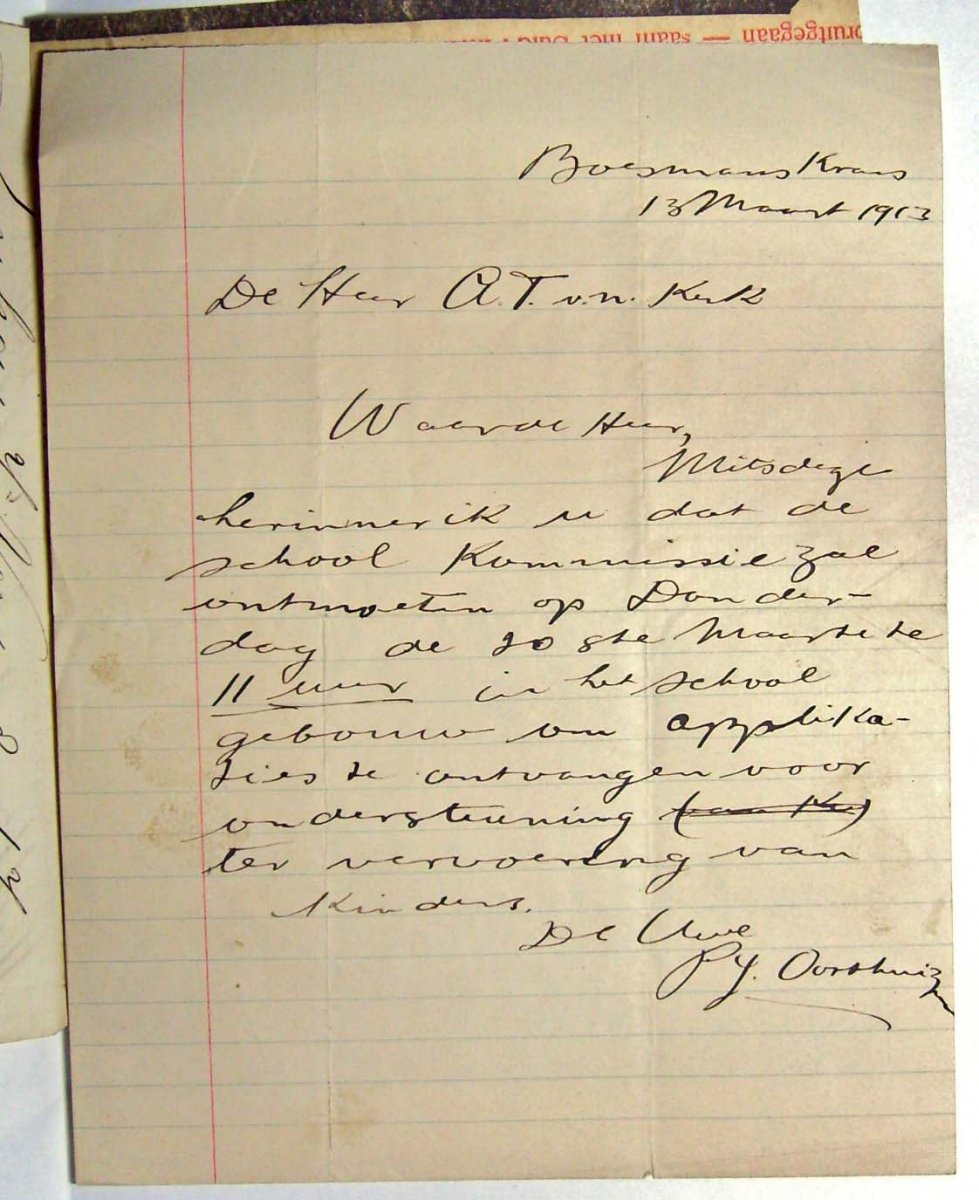 oruitgegaan — saam met Suid
Boesmans Kraal
13 Maart 1913
De Heer A.T. v.n. Kerk
Waarde Heer,
Mitsdeze
herinner ik u dat de
school Kommissie zal
ontmoeten op Donder-
dag de 20ste Maart te
11 uur in het school
gebouw om applika-
ties te ontvangen voor
ondersteuning (van Ki)
ter vervoering van
Kinders.
De Uwe
P.J. Oosthuizen